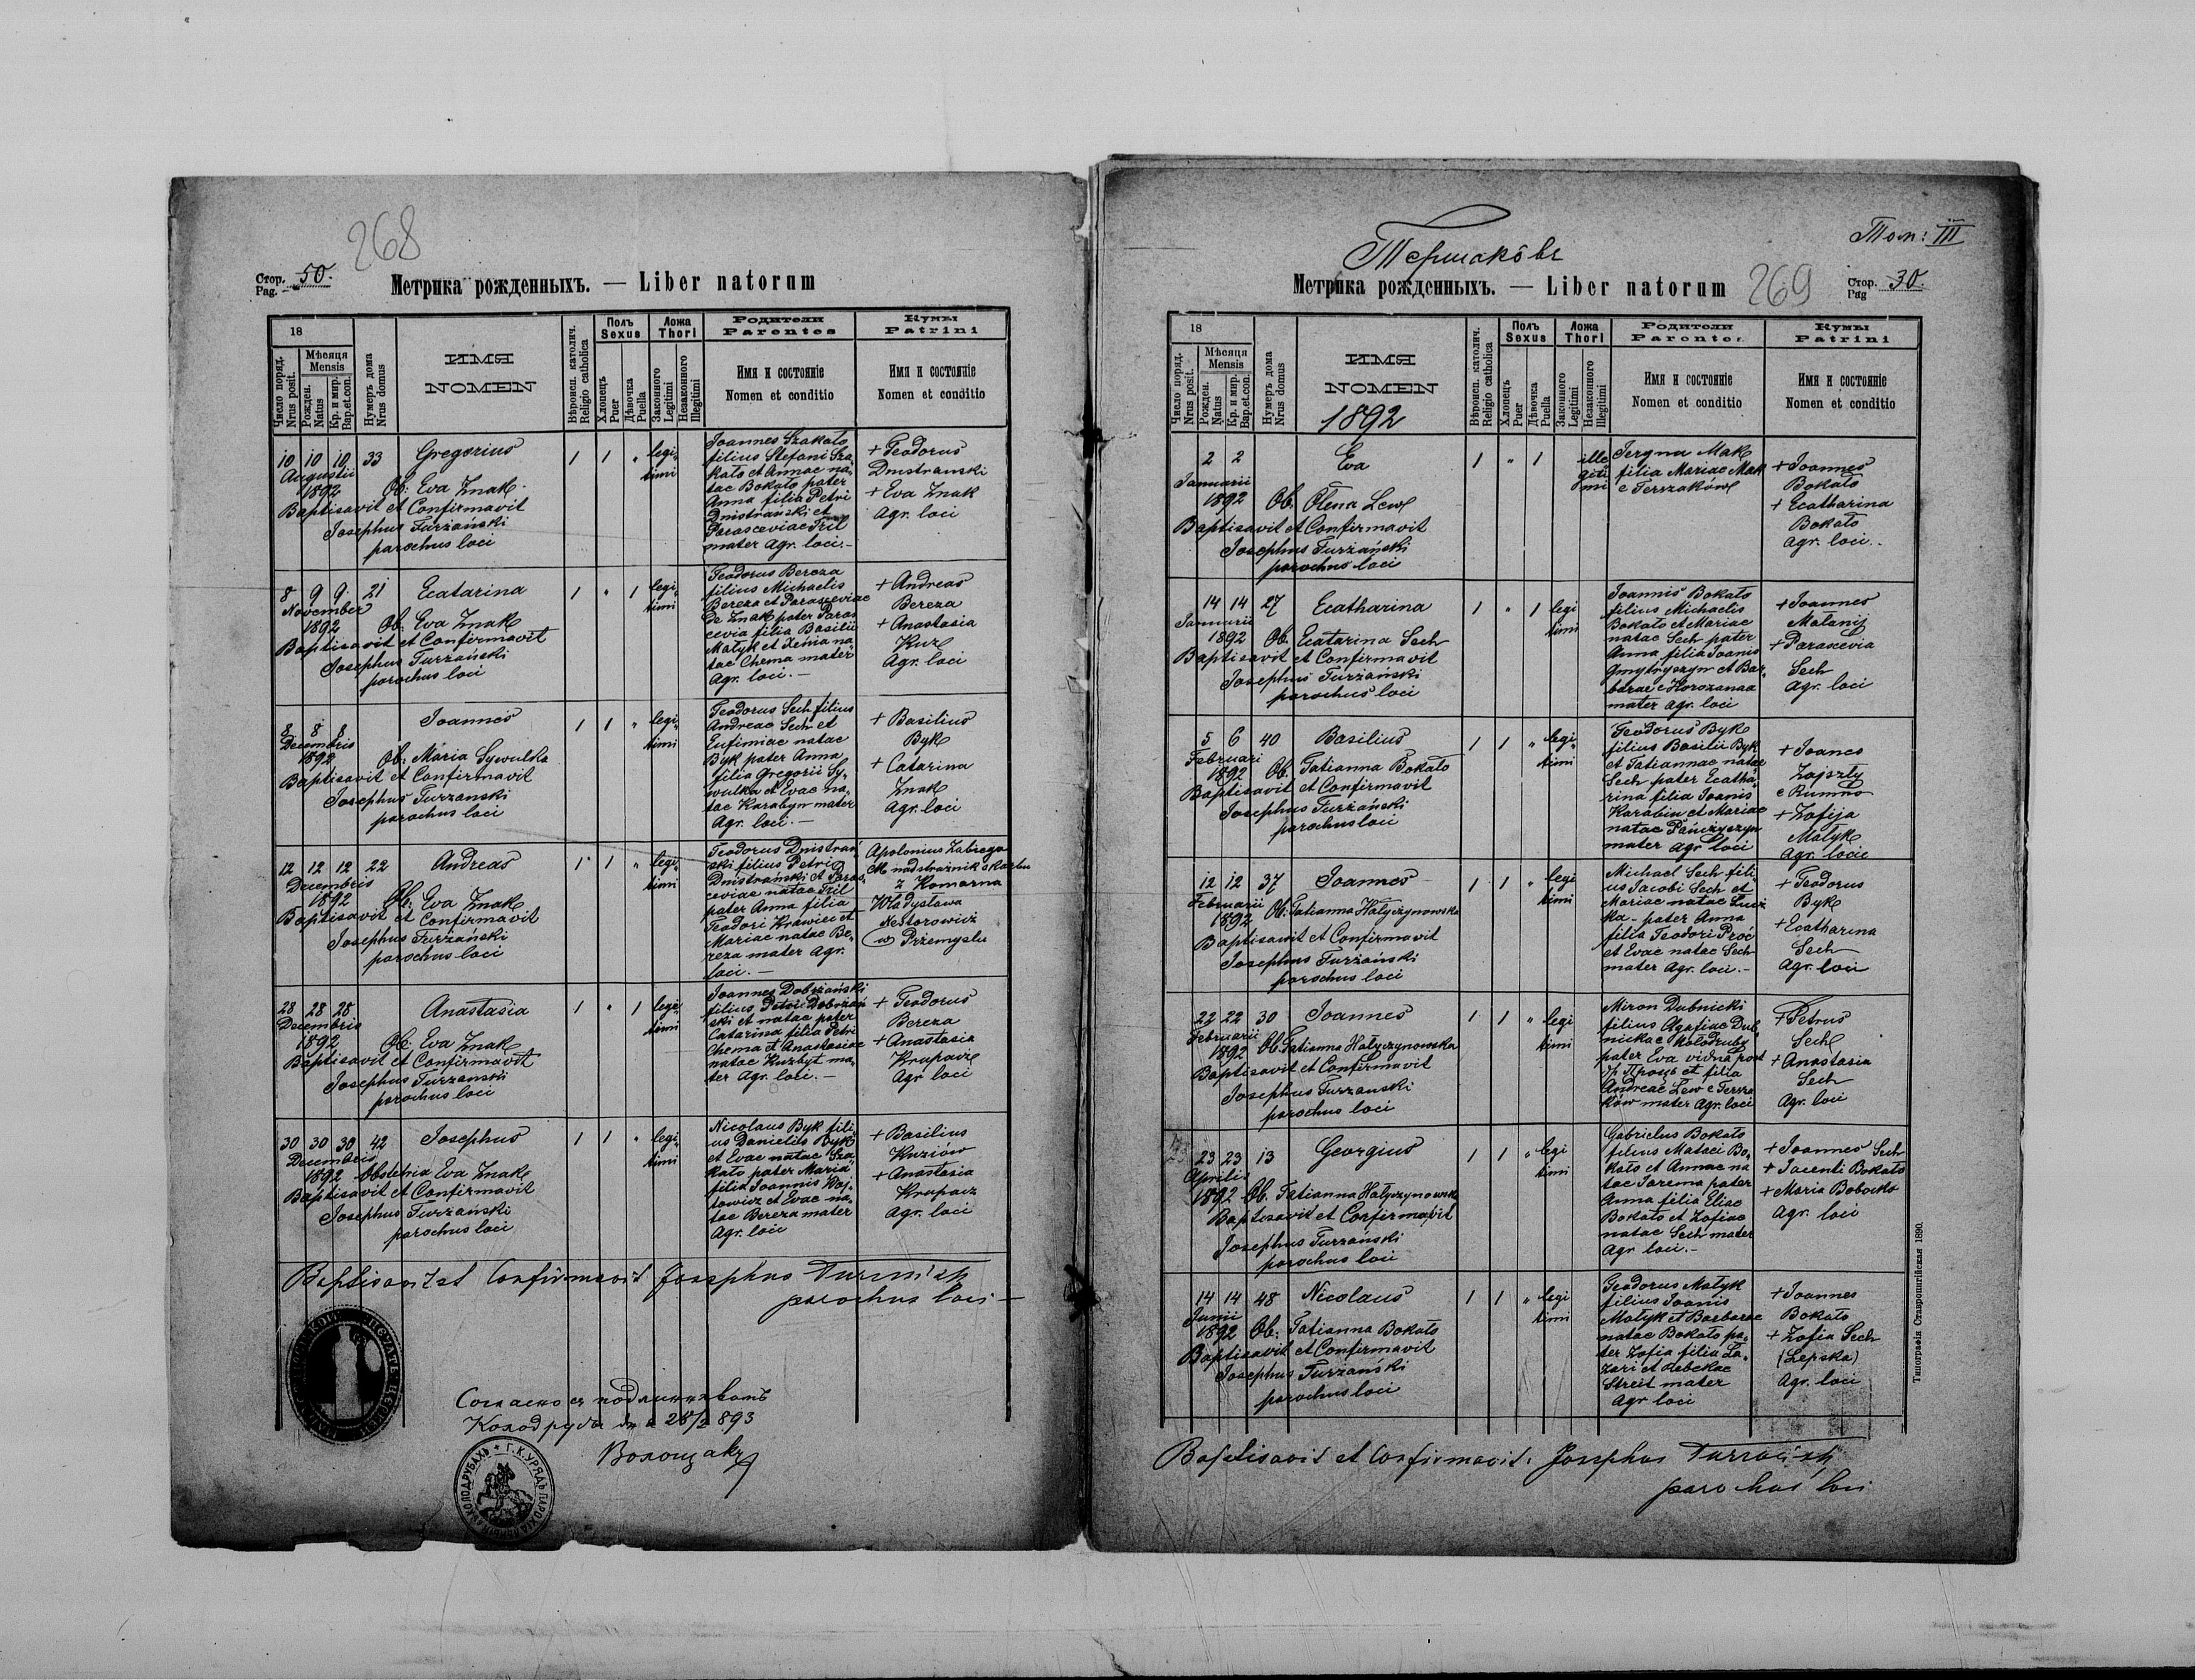 268
Стор. Pag. 50.
Метрика рожденныхъ. — Liber natorum
18
Число поряд. Nrus posit.
Мѣсяця Mensis
Рожден. Natus
Кр. и мир. Bap.et.con.
Нумеръ дома Nrus domus
ИМЯ
NOMEN
Вѣроисп. католич. Religio catholica
Полъ Sexus
Хлопецъ Puer
Дѣвочка Puella
Ложа Thori
Законного Legitimi
Незаконного Illegitimi
Родители
Parentes
Имя и состоянiе
Nomen et conditio
Кумы
Patrini
Имя и состоянiе
Nomen et conditio
10 10 10 33 Gregorius 1 1 " legi-
timi
Augustii
1892 Ob: Eva Znak.
Baptisavit et Confirmavit
Josephus Turzański
parochus loci
Joannes Szakato
filius Stefani Sza
kato et Annae na-
tae Bokato pater
Anna filia Petri
Dnistrański et
Parasceviae Tril
mater Agr. loci.-
+ Teodorus
Dnistranski
+ Eva Znak
Agr. loci
8 9 9. 21 Ecatarina 1 " 1 legi-
timi
November
1892 Ob: Eva Znak
Baptisavit et Confirmavit
Josephus Turzański
parochus loci
Teodorus Bereza
filius Michaelis
Bereza et Parasceviae
de Znak pater Paras
cevia filia Basilii
Matyk et Xenia na
tae Chema mater
Agr. loci. -
+ Andreas
Bereza
+ Anastasia
Kuz
Agr. loci
8 8 8 Joannes 1 1 " legi-
timi
Decembris
1892 Ob: Maria Sywulka
Baptisavit et Confirmavit
Josephus Turzanski
parochus loci
Teodorus Sech filius
Andreae Sech et
Eufimiae natae
Byk pater Anna
filia Gregorii Sy-
wulka et Evae na-
tae Karabyn mater
Agr. loci. -
+ Basilius
Byk
+ Catarina
Znak
Agr. loci
12 12 12 22 Andreas 1 1 " legi-
timi
Decembris
1892 Ob: Eva Znak
Baptisavit et Confirmavit
Josephus Turzański
parochus loci
Teodorus Dnistrań
ski filius Petri
Dnistrański et Paras-
ceviae natae Tril
pater Anna filia
Teodori Krawiec et
Mariae natae Be-
reza mater Agr.
loci. -
Apolonius Zabrega
nadstrażnik skarbu
z Komarna
Władysława
Nestorowicz
w Przemyslu
28 28 28 Anastasia 1 " 1 legi-
timi
Decembris
1892 Ob: Eva Znak
Baptisavit et Confirmavit
Josephus Turzanski
parochus loci
Joannes Dobrzański
filius Petri Dobrzań
ski et natae pater
Catarina filia Petri
Chema et Anastasiae
natae Kuzbyt ma-
ter Agr. loci. -
+ Teodorus
Bereza
+ Anastasia
Krupacz
Agr loci
30 30 30 42 Josephus 1 1 " legi-
timi
Decembris
1892 Obstetria Eva Znak
Baptisavit et Confirmavit
Josephus Turzański
parochus loci
Nicolaus Byk fili-
us Danielis Byk
et Evae natae Sza
kato pater Maria
filia Joannis Woj-
towicz et Evae na-
tae Bereza mater
Agr. loci
+ Basilius
Kuziów
+ Anastasia
Krupacz
Agr. loci
Baptisavit et Confirmavit Josephus Turzański
parochus loci -
Согласно съ подлинникомъ
Колодрубы дня 28/2 893
Волощакъ
Г.К. УРЯДЪ ПАРОХІАЛЬНЫЙ КОЛОДРУБАХЪ
Тершаковъ
Том: III
Метрика рожденныхъ. — Liber natorum
269
Стор. Pag 30.
18
Число поряд. Nrus posit.
Мѣсяця Mensis
Рожден. Natus
Кр. и мир. Bap.et.con.
Нумеръ дома Nrus domus
ИМЯ
NOMEN
1892
Вѣроисп. католич. Religio catholica
Полъ Sexus
Хлопецъ Puer
Дѣвочка Puella
Ложа Thori
Законного Legitimi
Незаконного Illegitimi
Родители
Parentes
Имя и состоянiе
Nomen et conditio
Кумы
Patrini
Имя и состоянiе
Nomen et conditio
2 2 Eva 1 " 1 ille
giti
mi
Januarii
1892 Ob: Olena Lew
Baptisavit et Confirmavit
Josephus Turzański
parochus loci
Jergna Mak
filia Mariae Mak
e Terszaków
+ Joannes
Bokato
+ Ecatharina
Bokato
agr. loci.
14 14 27 Ecatharina 1 " 1 legi
timi
Januarii
1892 Ob. Ecatarina Sech
Baptisavit et Confirmavit
Josephus Turzański
parochus loci
Joannis Bokato
filius Michaelis
Bokato et Mariae
natae Sech pater
Anna filia Joanis
Gmytryszyn et Bar-
barae e Horozanna
mater agr. loci
+ Joannes
Matanij
+ Parascevia
Sech
Agr. loci
5 6 40 Basilius 1 1 " legi-
timi
Februari
1892 Ob. Tatianna Bokato
Baptisavit et Confirmavit
Josephus Turzański
parochus loci
Teodorus Byk
filius Basilii Byk
et Tatiannae natae
Sech pater Ecatha-
rina filia Joanis
Karabin et Mariae
natae Pańczyszyn
mater agr loci
+ Joanes
Zajszty
e Rumno
+ Zofija
Matyk
Agr. locie
12 12 37 Joannes 1 1 " legi
timi
Februarii
1892 Ob: Tatianna Hatyczynowska
Baptisavit et Confirmavit
Josephus Turzański
parochus loci
Michael Sech fili-
us Jacobi Sech et
Mariae natae
ka - pater Anna
filia Teodori Proć
et Evae natae Sech
mater Agr. loci.-
+ Teodorus
Byk
+ Ecatharina
Sech
Agr. loci
22 22 30 Joannes 1 1 " legi
timi
Februarii
1892 Ob. Tatianna Hatyczynowska
Baptisavit et Confirmavit
Josephus Turzanski
parochus loci
Miron Dubnicki
filius Agafiae Dub-
nickae Kotodruby
pater Eva vidua post
et filia
Andreae Lew e Tersza
ków mater Agr. loci
+ Petrus
Sech
+ Anastasia
Sech
Agr. loci
23 23 13 Georgius 1 1 " legi
timi
Aprilis
1892 Ob. Tatianna Hatyczynowska
Baptisavit et Confirmavit
Josephus Turzański
parochus loci
Gabrielus Bokato
filius Mataei Bo-
kato et Annae na
tae Jarema pater
Anna filia Eliae
Bokato et Zofiae
natae Sech mater
Agr loci. -
+ Joannes Sech
+ Jacenti Bokato
+ Maria Bobocka
Agr. loci
14 14 48 Nicolaus 1 1 " legi
timi
Junii
1892 Ob: Tatianna Bokato
Baptisavit et Confirmavit
Josephus Turzański
parochus loci
Teodorus Matyk
filius Joanis
Matyk et Barbarae
natae Bokato pa-
ter Zofia filia La-
zari et Rebekae
Streit mater
Agr loci
+ Joannes
Bokato
+ Zofia Sech
(Lepska)
Agr. loci
Baptisavit et Confirmavit: Josephus Turzański
parochus loci
Типографія Ставропигійская 1890.